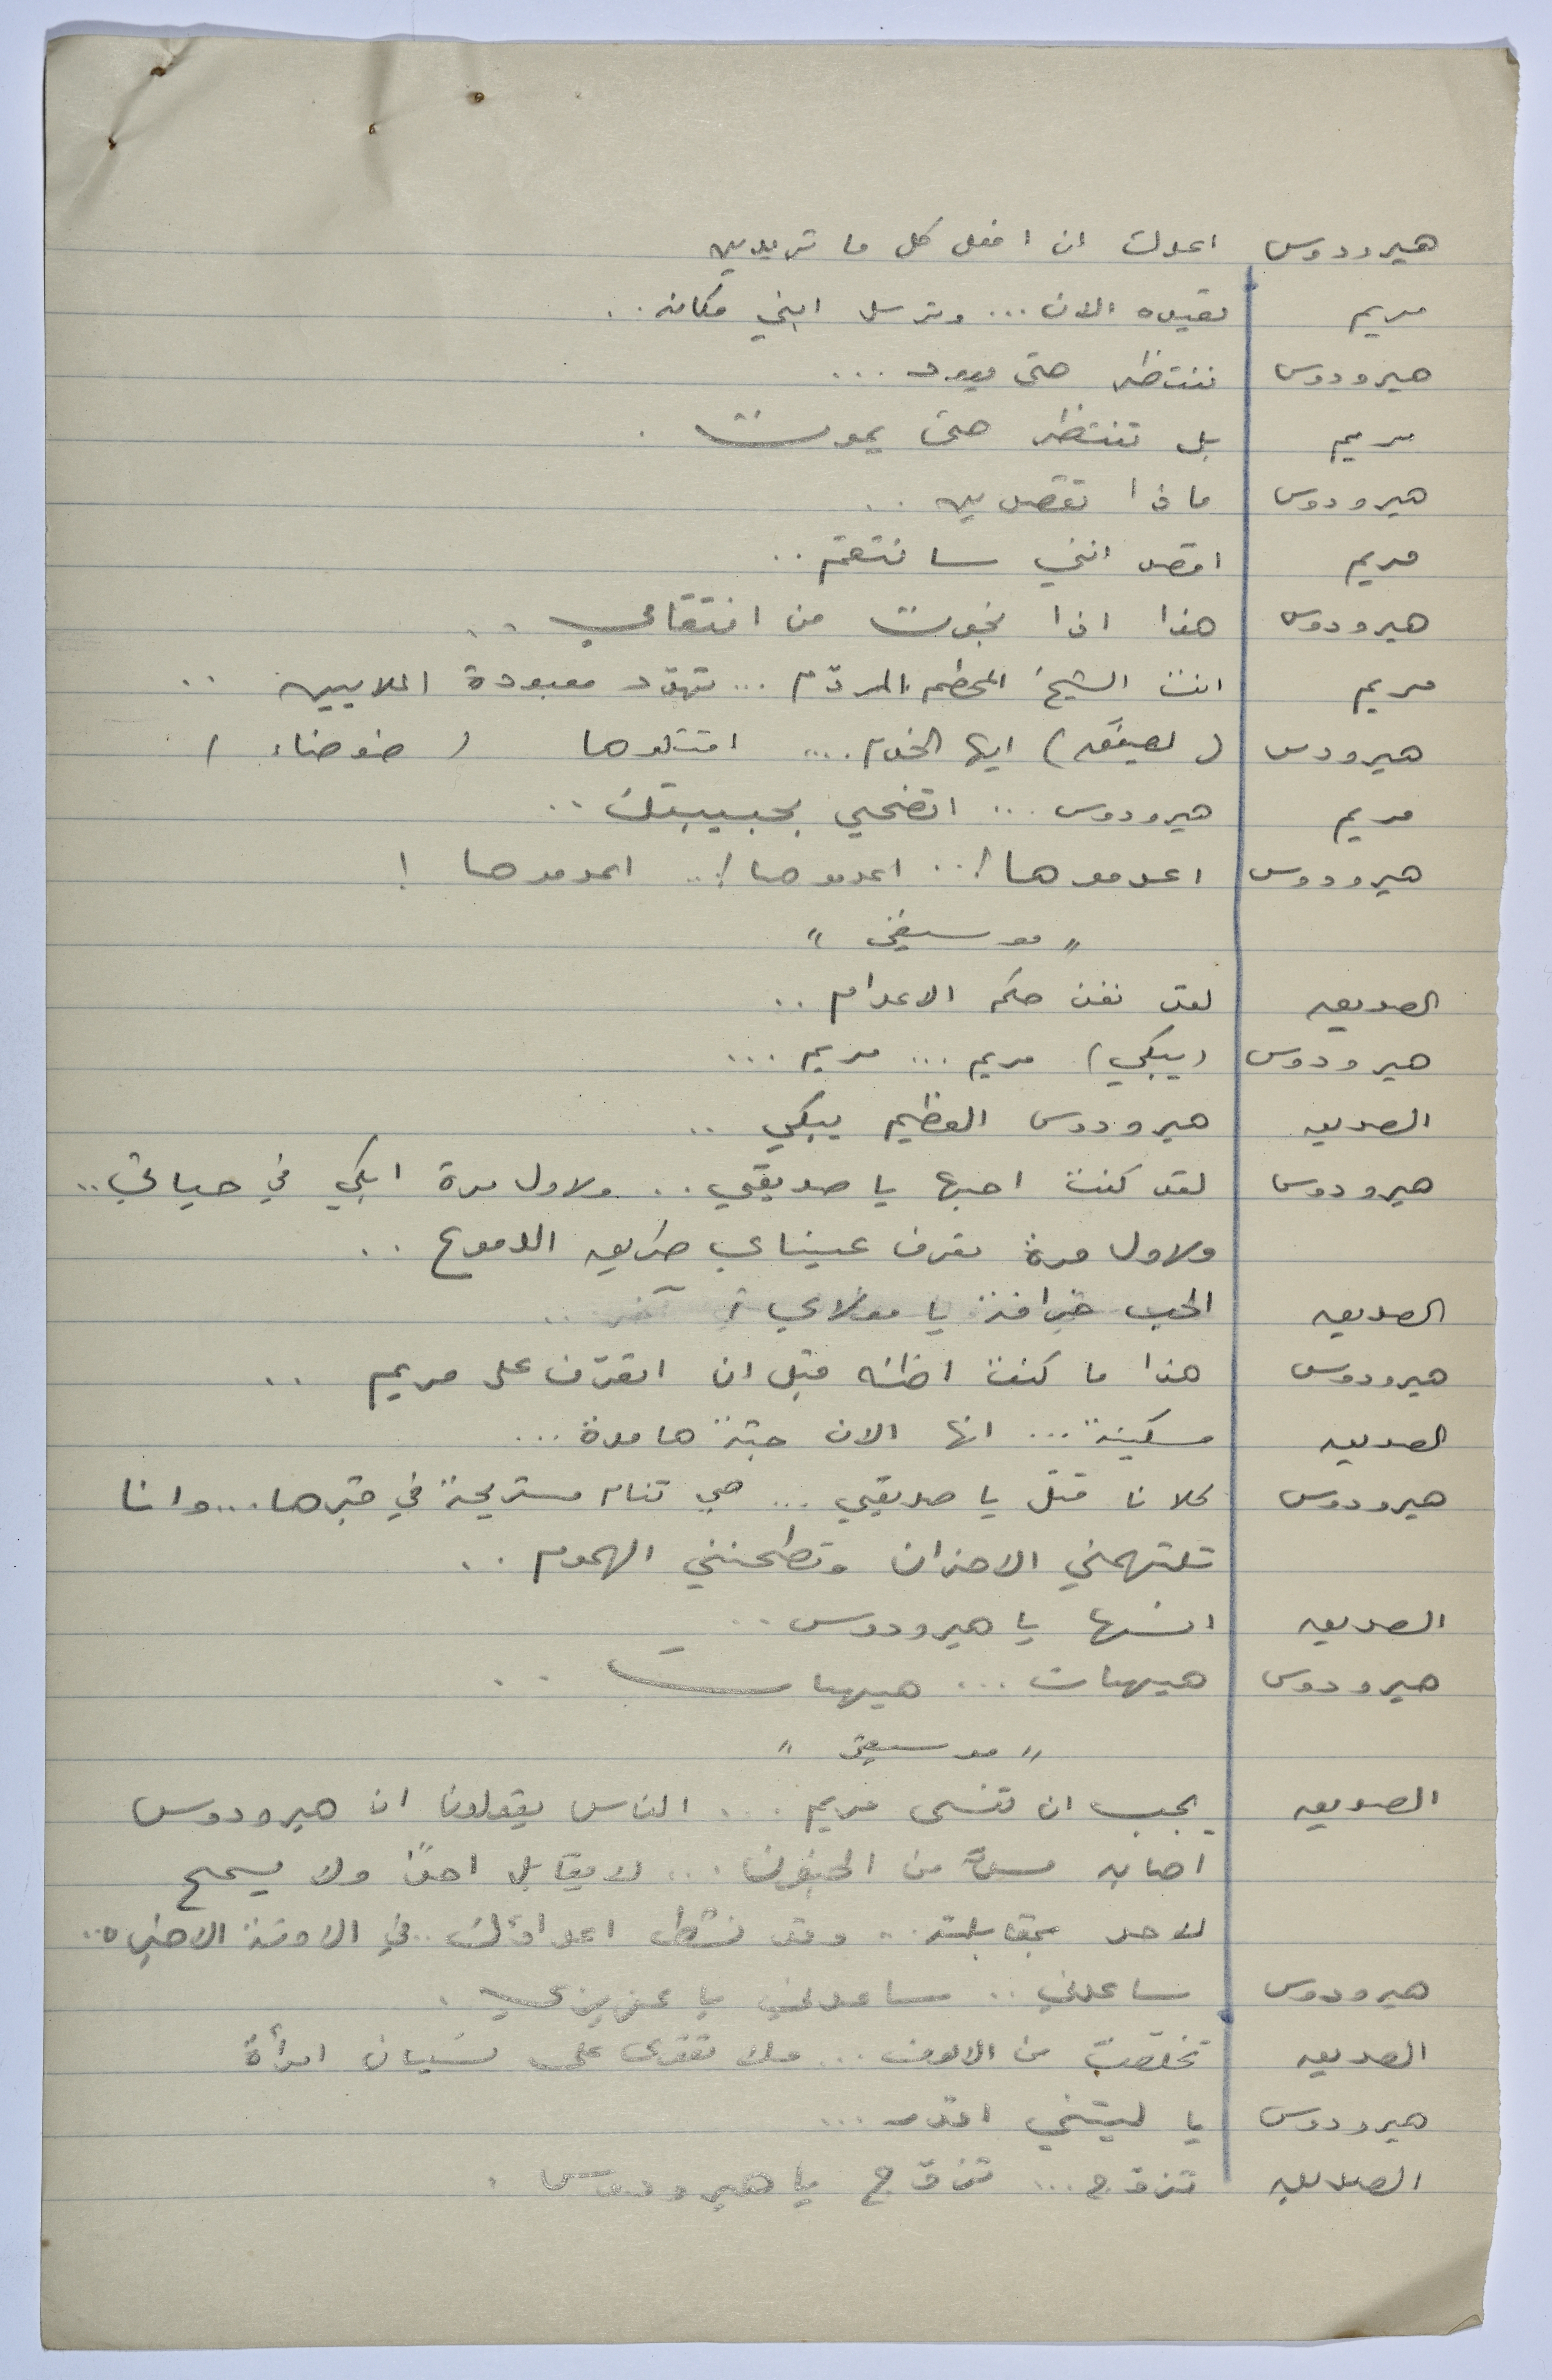 هيرودوس اعدك ان افعل كل ما تريدين
مريم تقيله الان ... وترسل ابني مكانه ..
هيرودوس ننتظر حتى يعود ...
مريم بل تنتظر حتى يموت .
هيرودوس ماذا تقصدين ..
مريم اقصد انني سانتقم ..
هيرودوس هذا اذا نجوت من انتقامي ..
مريم انت الشيخ المحطم المردّم ... تهدد معبودة الملايين ..
هيرودس ( لصيقه ) ايها الخدم .... اقتلوها ( ضوضاء )
مريم هيرودوس ... اتضحي بحبيبتك ..
هيرودوس اعدموها !.. اعدموها !.. اعدموها !
" موسيقى "
الصديق لقد نفذ حكم الاعدام ..
هيرودوس ( يبكي ) مريم ... مريم ...
الصديق هيرودوس العظيم يبكي ..
هيرودوس لقد كنت احبها يا صديقي .. ولاول مرة ابكي في حياتي ..
ولاول مرة تعرف عيناي طريق الدموع ..
الصديق الحب خرافة يا مولاي ..
هيرودوس هذا ما كنت اظنه قبل ان اتعرّف على مريم ..
الصديق مسكينة ... انها الان جثة هامدة ...
هيرودوس كلانا قتل يا صديقي ... هي تنام مستريحة في قبرها ... وانا
تلتهمني الاحزان وتطحنني الهموم ..
الصديق انسها يا هيرودوس ..
هيرودوس هيهات ... هيهات ..
" موسيقى "
الصديق يجب ان تنسى مريم ... الناس يقولون ان هيرودوس
اصابه مسّ من الجنون ... لا يقابل احدًا ولا يسمح
لاحد بمقابلته .. وقد نشط اعداؤك في الاونة الاخيره ..
هيرودوس ساعدني .. ساعدني يا عزيزي .
الصديق تخلصت من الالوف ... ولا تقوى على نسيان امرأة
هيرودوس يا ليتني اقدر ...
الصديق تزوّج ... تزوّج يا هيرودوس .